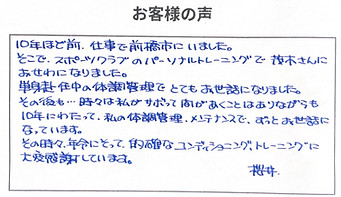 お客様の声
10年ほど前、仕事で前橋市にいました。
そこで、スポーツクラブのパーソナルトレーニングで茂木さんに
おせわになりました。
単身赴任中の体調管理でとてもお世話になりました。
その後も…時々は私がサボって間があくことはありながらも
10年にわたって、私の体調管理、メンテナンスで、ずっとお世話に
なっています。
その時々、年令にそって、的確なコンディショニング、トレーニングに
大変感謝しています。
桜井